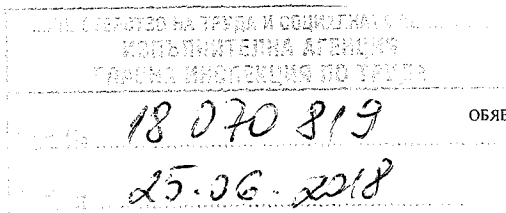 МИНИСТЕРСТВО НА ТРУДА И СОЦИАЛНАТА
ИЗПЪЛНИТЕЛНА АГЕНЦИЯ
ГЛАВНА ИНСПЕКЦИЯ ПО ТРУДА
18 070 819
ОБЯВ
25.06.2018